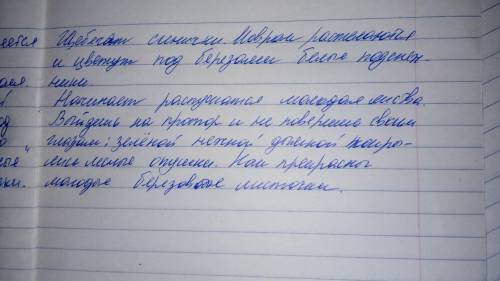 еется Щебечат синички. Ковром расстелаются
и цветут под берёзами белые подснеж-
аея. ники
Начинает распускатся молодая листва.
од Выйдишь на простор и не поверишь своим
глазам: зелёной нежной дымкой покры-
ые лись лесные опушки. Как прекрасны
ки. молодые березовые листочки.